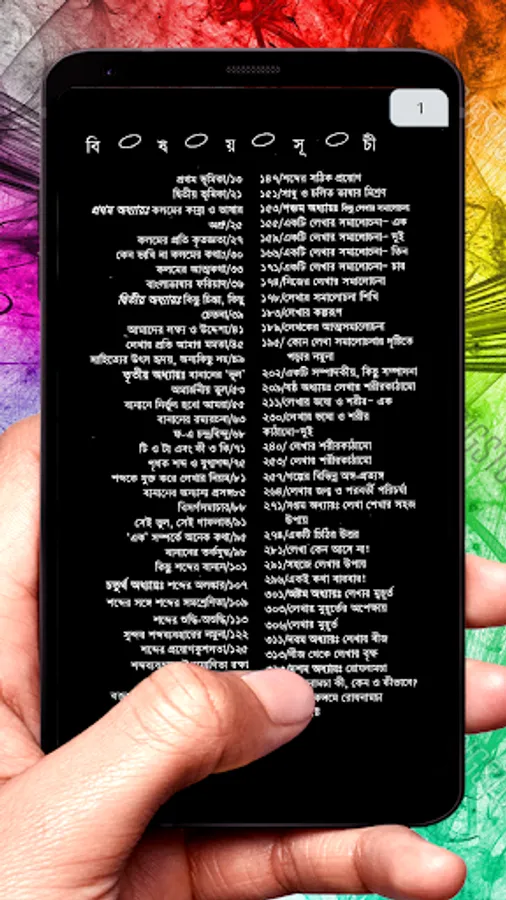 1
বি ষ য় সূ চী
প্রথম ভূমিকা/১৩
দ্বিতীয় ভূমিকা/২১
প্রথম অধ্যায়ঃ কলমের কান্না ও ভাষার
অশ্রু/২৫
কলমের প্রতি কৃতজ্ঞতা/২৭
কেন ভাবি না কলমের কথা/৩০
কলমের আত্মকথা/৩৩
বাংলাভাষার ফরিয়াদ/৩৬
দ্বিতীয় অধ্যায়ঃ কিছু চিন্তা, কিছু
চেতনা/৩৯
আমাদের লক্ষ্য ও উদ্দেশ্য/৪১
লেখার প্রতি আমার মমতা/৪৫
সাহিত্যের উৎস হৃদয়, অন্যকিছু নয়/৪৯
তৃতীয় অধ্যায়ঃ বানানের 'ভুল'
অমার্জনীয় ভুল/৫৩
বানানে নির্ভুল হবো আমরা/৫৫
বানানের রহস্যরচনা/৬৩
ষ-এ চন্দ্রবিন্দু/৬৮
টি ও টা এবং কী ও কি/৭১
পৃথক শব্দ ও যুগ্মশব্দ/৭৫
শব্দকে যুক্ত করে লেখার নিয়ম/৮১
বানানের অন্যান্য প্রসঙ্গ/৮৫
বিসর্গসমাচার/৮৮
সেই ভুল, সেই গাফলাত/৯১
'এক' সম্পর্কে অনেক কথা/৯৫
বানানের তর্কযুদ্ধ/৯৮
কিছু শব্দের বানান/১০১
চতুর্থ অধ্যায়ঃ শব্দের অলঙ্কার/১০৭
শব্দের সঙ্গে শব্দের সমশ্রেণিতা/১০৯
শব্দের শুদ্ধি-অশুদ্ধি/১১৩
সুন্দর শব্দব্যবহারের নমুনা/১২২
শব্দের প্রয়োগকুশলতা/১২৫
রক্ষা
১৪৭/শব্দের সঠিক প্রয়োগ
১৫১/সাধু ও চলিত ভাষার মিশ্রণ
১৫৩/পঞ্চম অধ্যায়ঃ কিছু লেখার সমালোচনা
১৫৫/একটি লেখার সমালোচনা- এক
১৫৯/একটি লেখার সমালোচনা- দুই
১৬৬/একটি লেখার সমালোচনা- তিন
১৭১/একটি লেখার সমালোচনা- চার
১৭৪/নিজের লেখার সমালোচনা
১৭৮/লেখার সমালোচনা শিখি
১৮৩/লেখার কল্পরূপ
১৮৯/লেখকের আত্মসমালোচনা
১৯৫/ কোন লেখা সমালোচনার দৃষ্টিতে
পড়ার নমুনা
২০২/একটি সম্পাদকীয়, কিছু সম্পাদনা
২০৯/ষষ্ঠ অধ্যায়ঃ লেখার শরীরকাঠামো
২১১/লেখার ভাষা ও শরীর- এক
২৩০/লেখার ভাষা ও শরীর
কাঠামো-দুই
২৪০/ লেখার শরীরকাঠামো
২৫৩/ লেখার শরীরকাঠামো
২৫৭/গল্পের বিভিন্ন অঙ্গ-প্রত্যঙ্গ
২৬৪/লেখার জন্ম ও পরবর্তী পরিচর্যা
২৭১/সপ্তম অধ্যায়ঃ লেখা শেখার সহজ
উপায়
২৭৪/একটি চিঠির উত্তর
২৮১/লেখা কেন আসে না!
২৯১/সহজে লেখার উপায়
২৯৬/একই কথা বারবার!
৩০১/অষ্টম অধ্যায়ঃ লেখার মুহূর্ত
৩০৩/লেখার মুহূর্তের অপেক্ষায়
৩০৬/লেখার মুহূর্ত
৩১১/নবম অধ্যায়ঃ লেখার বীজ
৩১৩/বীজ থেকে লেখার বৃক্ষ
দশম অধ্যায়ঃ রোযনামচা
কী, কেন ও কীভাবে?
কলমে রোযনামচা